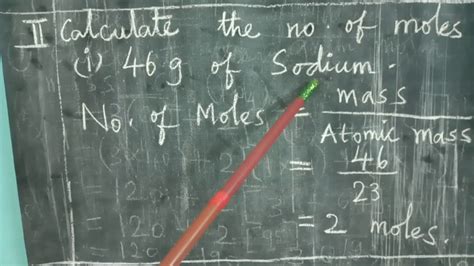 II Calculate the no. of moles
(i) 46 g of Sodium.
No. of Moles = mass
Atomic mass
= 46
23
= 2 moles.